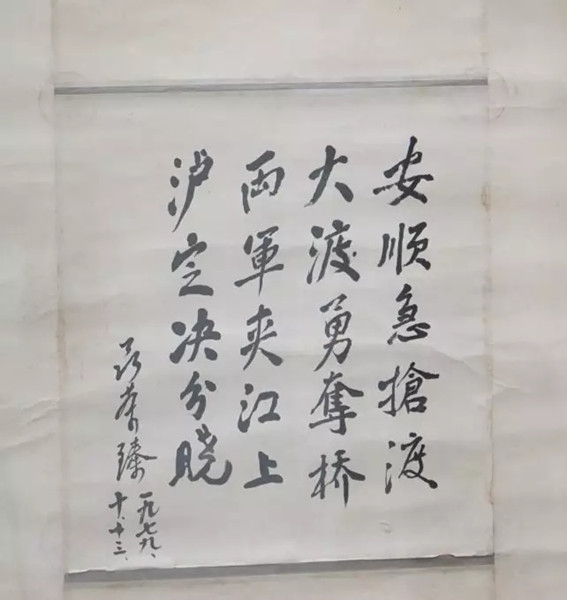 安顺急搶渡
大渡勇奪桥
两軍夹江上
泸定决分晓
聂荣臻
一九七九、
十、十三、